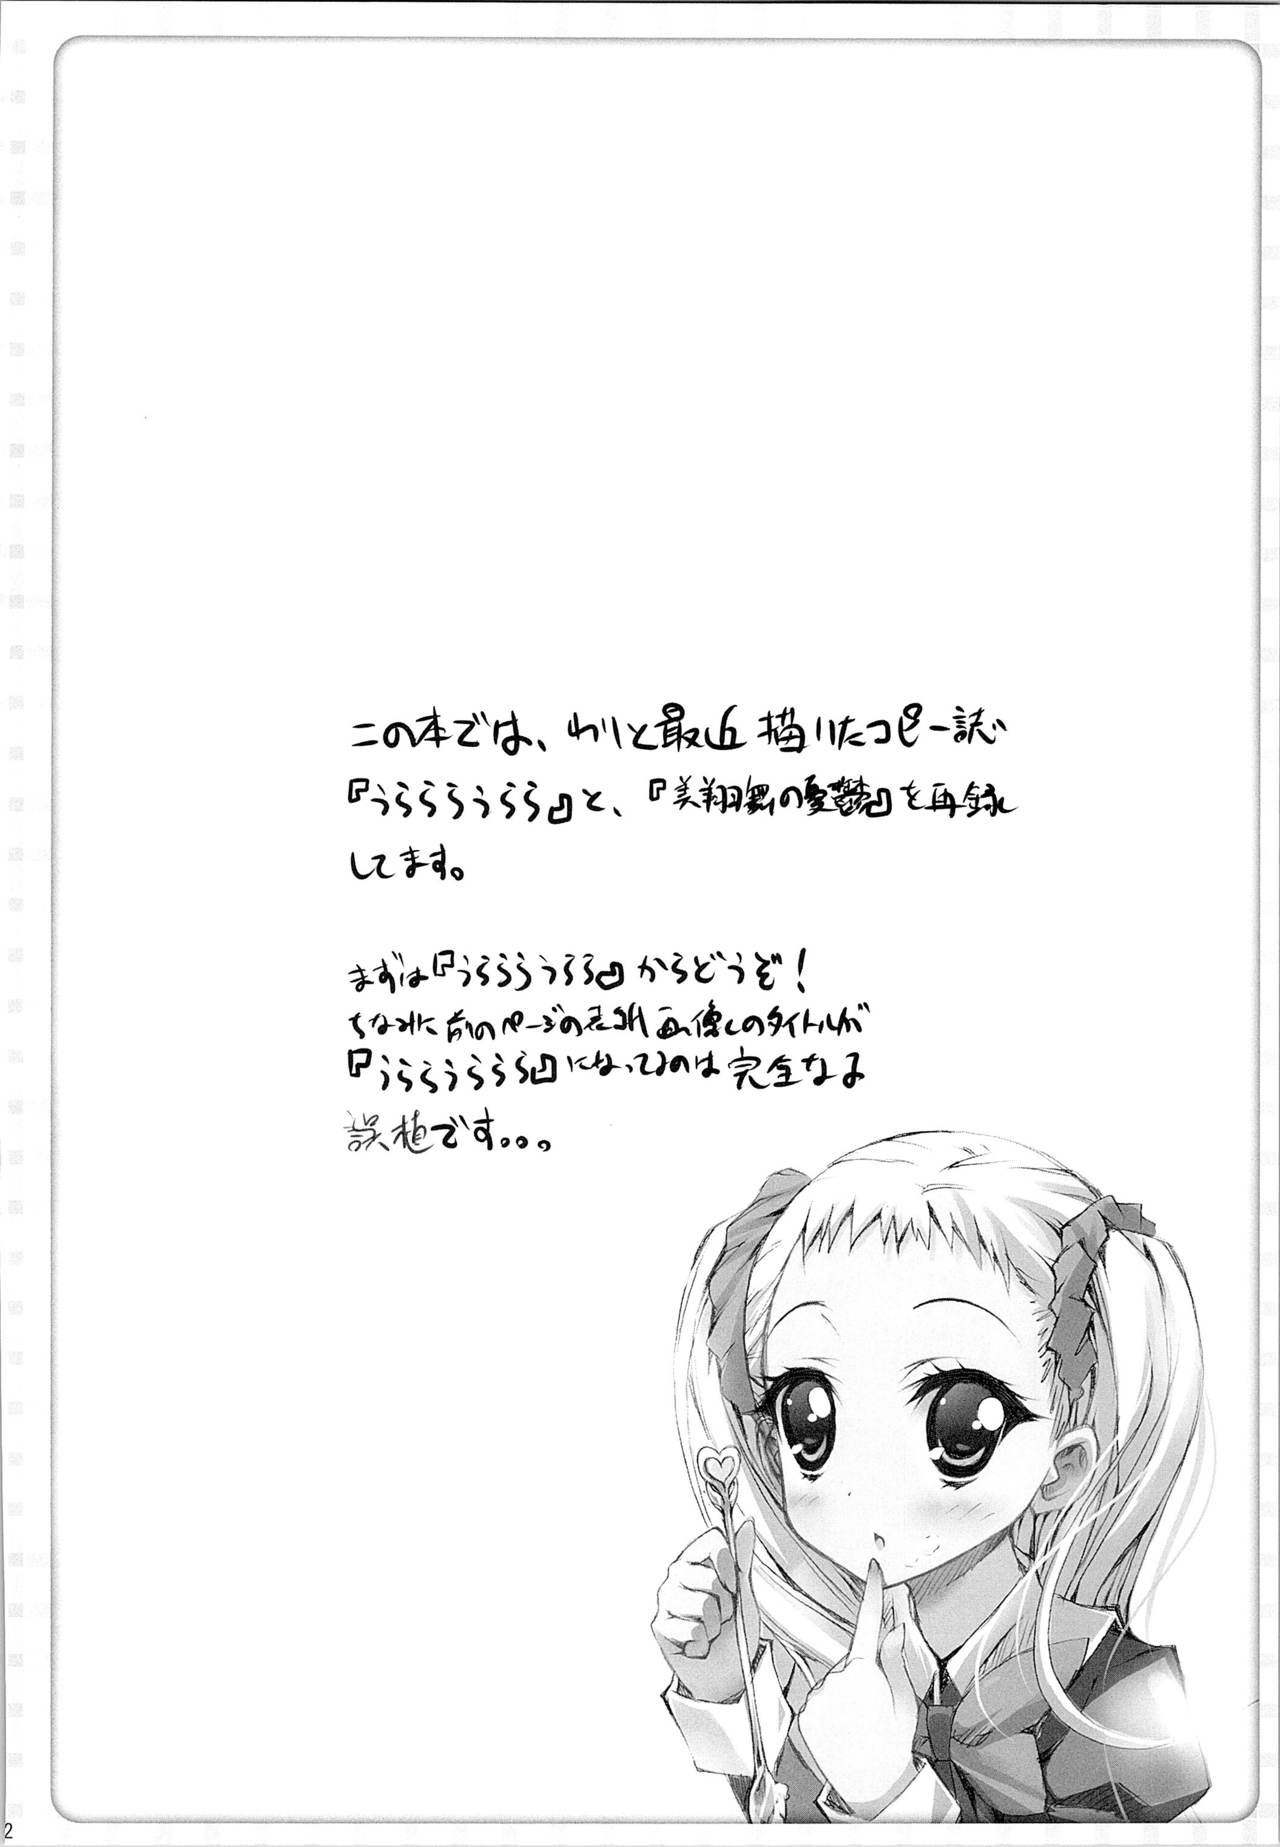 この本では、わりと最近描いたコピー誌
『うらららうらら』と、『美翔舞の憂鬱』を再録
してます。
まずは『うらららうらら』からどうぞ！
ちなみに前のページの表紙画像のタイトルが
『うららうららら』になってるのは完全なる
誤植です。。。
2